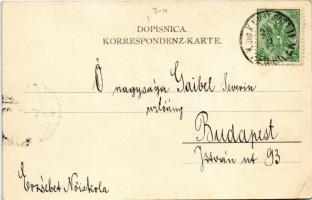 DOPISNICA.
KORRESPONDENZ-KARTE.
Ő nagysága Gaibel Severin
urlőnÿ
Budapest
István út 93
Erzsébet Nőiskola